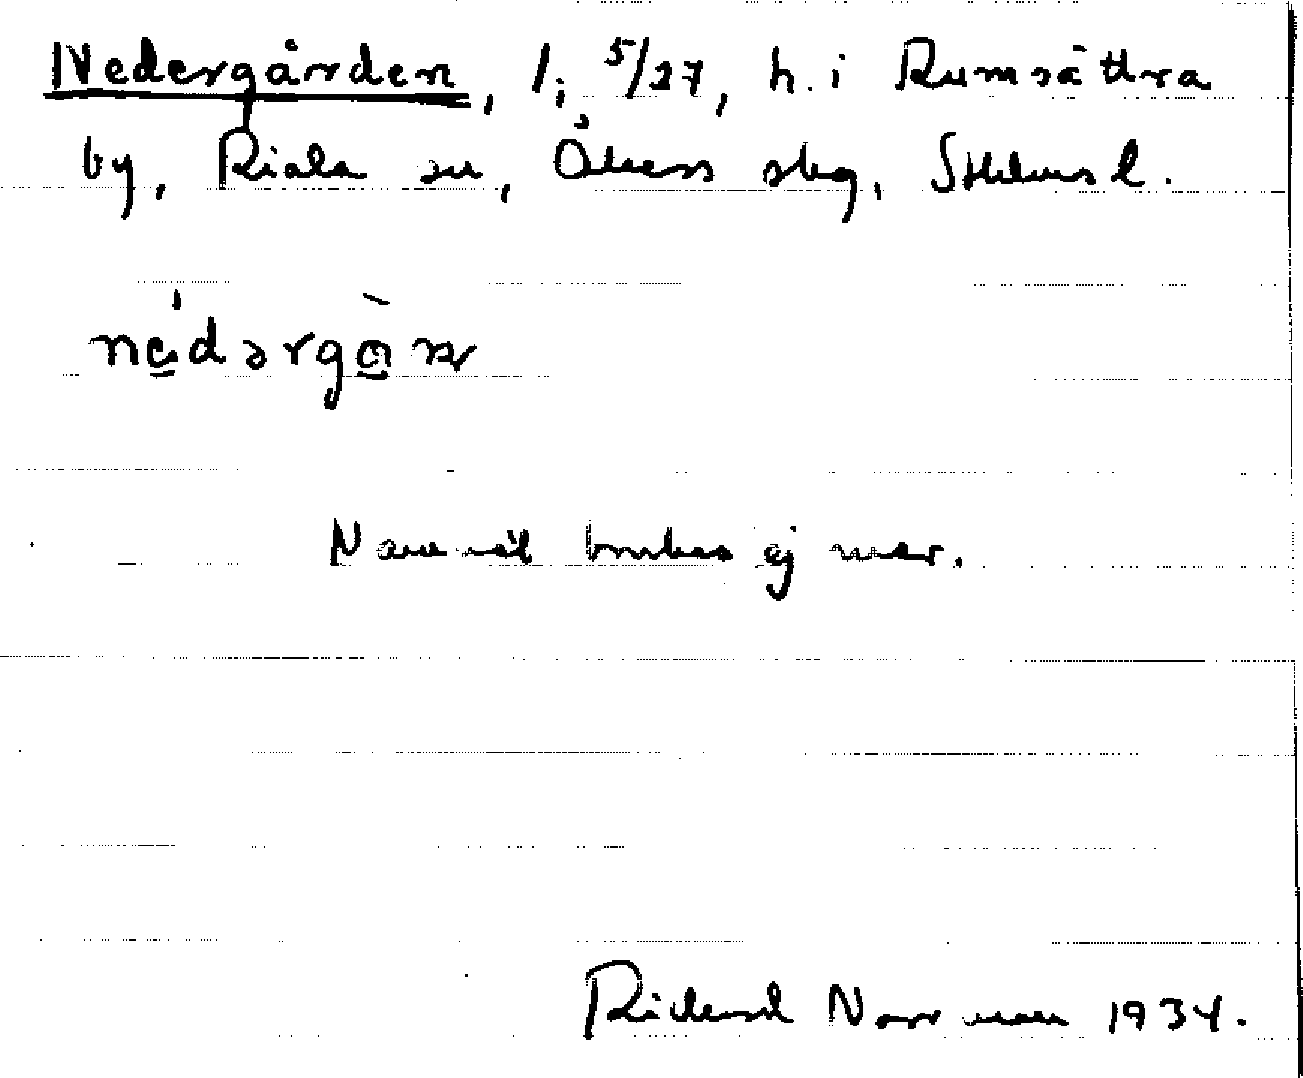 Nedergården, 1; 5/27, h. i Rumsättra
by, Riala sn, Åkers skg, Sthlms l.
nẹ́dərgọ̀ṇ
Namnet brukas ej mer.
Rickard Norrman 1934.